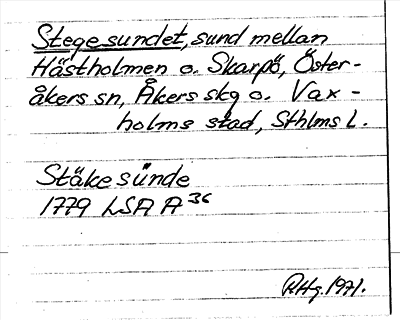 Stegesundet, sund mellan
Hästholmen o. Skarpö, Öster-
åkers sn, Åkers skg o. Vax-
holms stad, Sthlms l.
Stäke sünde
1779 LSA A 36
RHg. 1971.